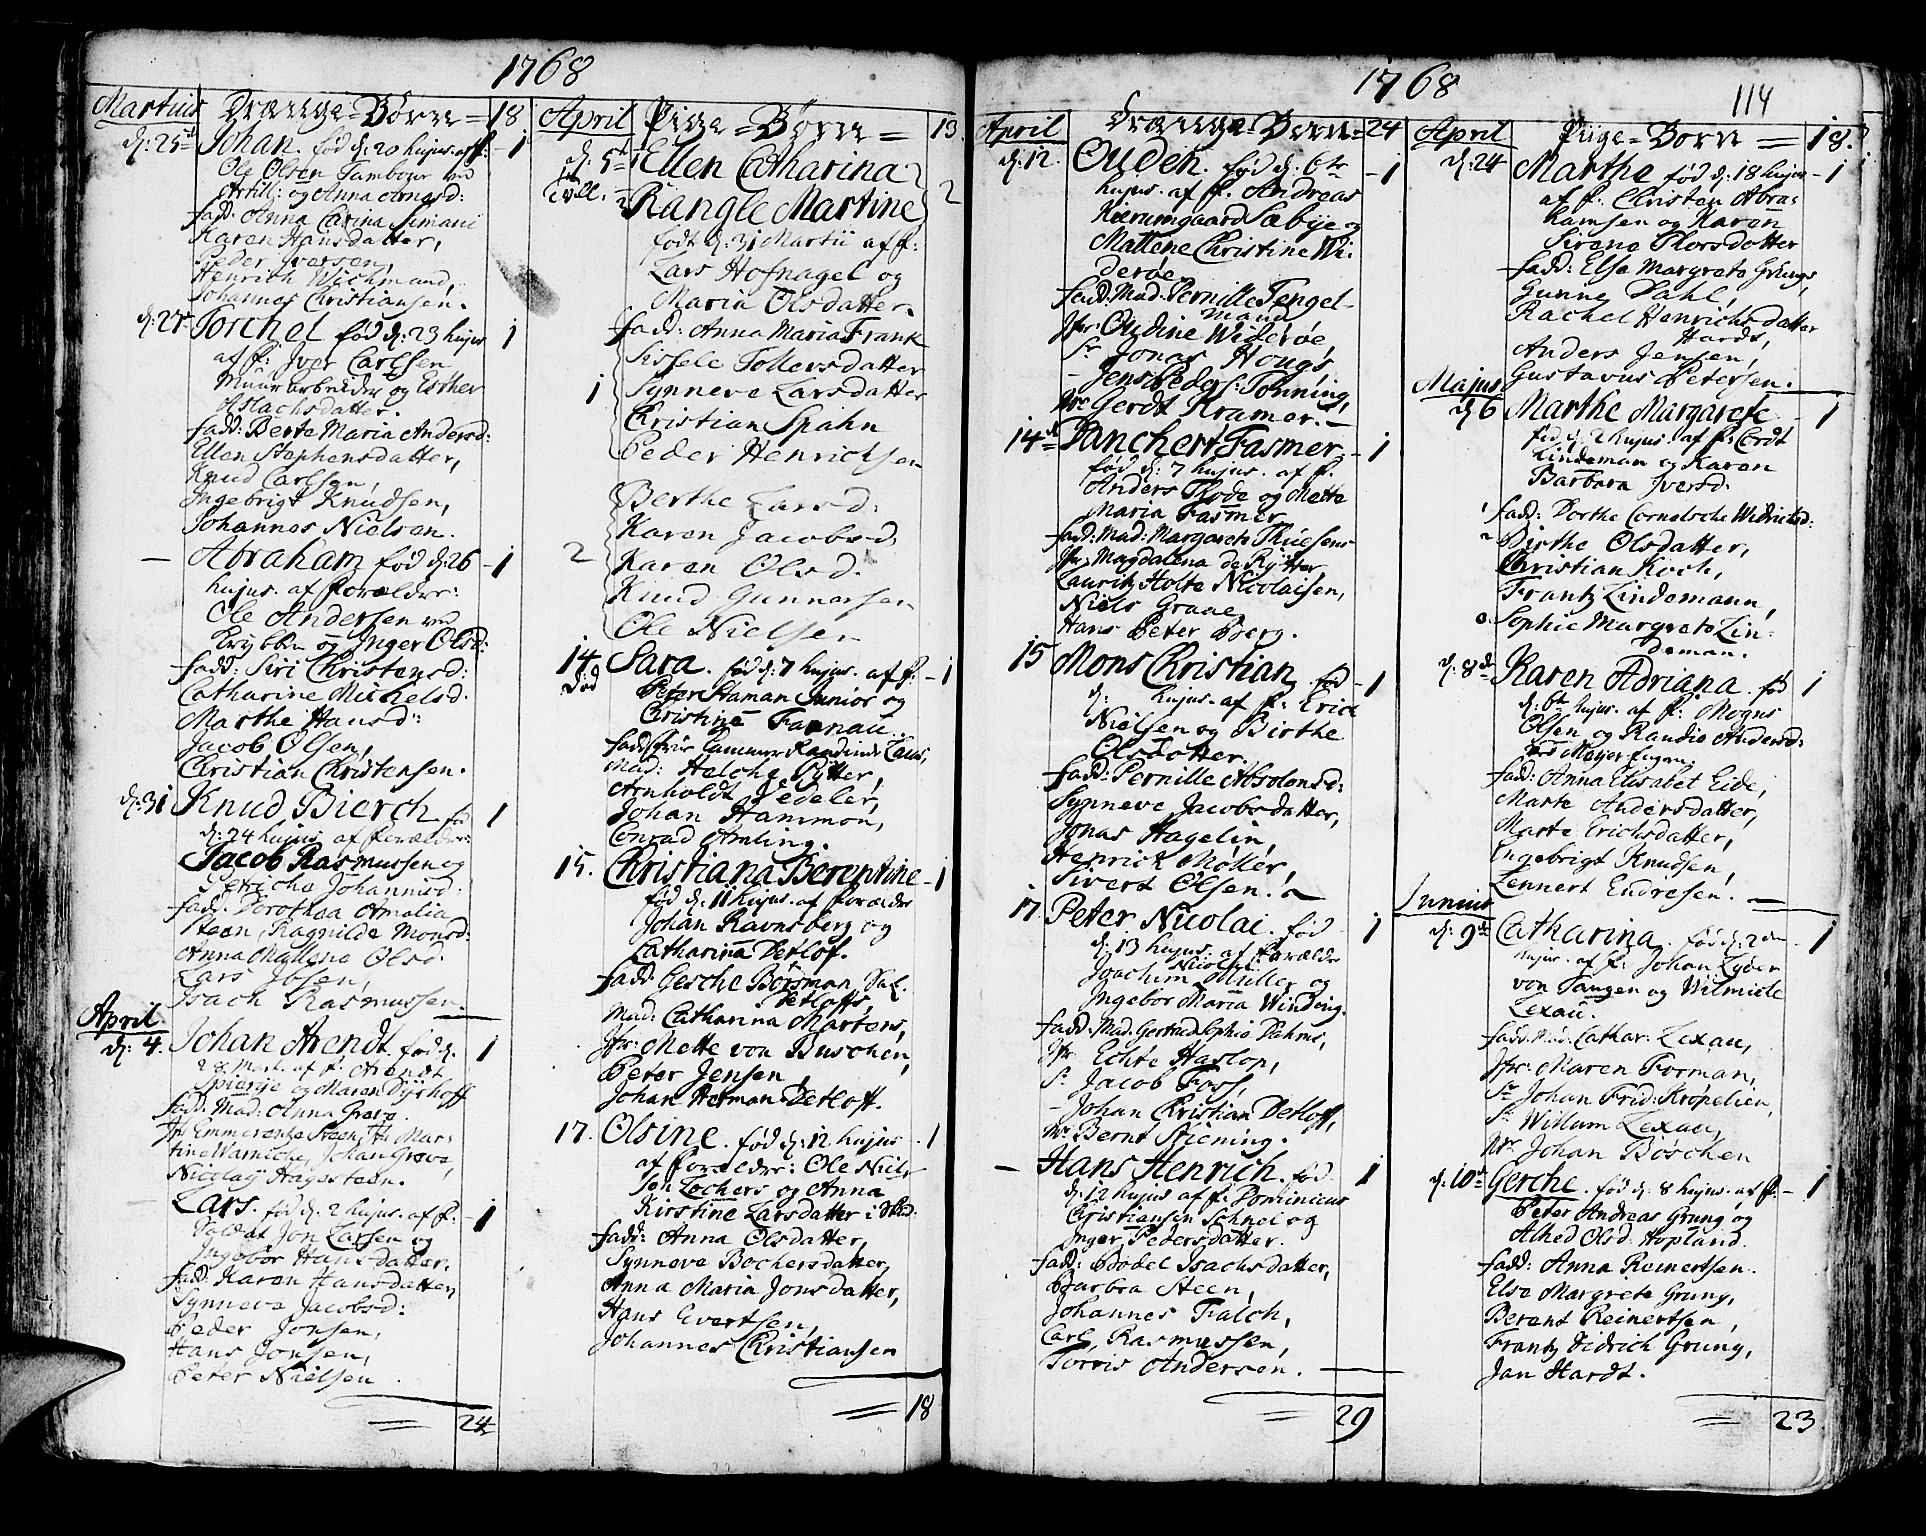 1768
Martius Drænge-Børn = 18
d: 25de Johan. fød d: 20 hujus af f: - 1
Ole Olsen Tambour ved
Artill: og Anna Arnesd:
fadd: Anna Carina Simani
Karen Hansdatter,
Peder Iversen,
Henrich Wichmand,
Johannes Christiansen.
d: 27de Torchel fød d: 23 hujus 1
af f: Iver Carlsen
Muur arbeider og Esther
Aslachsdatter.
fadd: Berte Maria Andersd:
Ellen Stephensdatter,
Knud Carlsen,
Ingebrigt Knudsen,
Johannes Nielsen.
— Abraham fød d: 26 - 1
hujus. af Forældre:
Ole Andersen ved
Krybben og Inger Olsd:
fadd: Siri Christensd:
Catharine Michelsd.
Marthe Hansd:
Jacob Olsen,
Christian Christensen.
d: 31 Knud Bierch fød 1
d: 24 hujus af Forældre:
Jacob Rasmussen og
Petricha Johannisd:
fadd: Dorothea Amalia
Steen, Ragnilde Monsd:
Anna Mallena Olsd.
Lars Ibsen,
Isach Rasmussen.
April
d: 4. Johan Arendt. fød d. 1
28 Mart. af f: Arendt
Spierije og Maren Dyrhoff
fadd: Mad: Anna Greve.
Fru Emmerentze Steen, Fru Mar:
tine Warnicke, Johan Greve,
Nicolaij Hagesteen.
— Lars. fød d. 2 hujus. af f: - 1
Soldat Jon Larsen og
Ingebor Hansdatter.
fadd: Karen Hansdatter,
Synneve Jacobsd:
Peder Jonsen,
Hans Jonsen,
Peter Nielsen.
= 24
April Pige=Børn = 13
d: 5te Ellen Catharina
Tvill: Rangle Martine 2
født d: 31 Martii af f:
Lars Hofnagel og
Maria Olsdatter.
fadd: Anna Maria Frank
Sissele Tollersdatter
1 Synneve Larsdatter
Christian Spahn
Peder Henrichsen
Berthe Larsd:
Karen Jacobsd.
2 Karen Olsd.
Knud Gunnersen
Ole Nielsen
14. Sara. fød d: 7 hujus. af f: - 1
død Peter Staman Junior og
Christine Farnau.
Mad: Helche Rÿtter,
Arnholdt Vedeler,
Johan Hammon,
Conrad Amling.
15. Christiana Berentine - 1
fød d: 11 hujus. af forældre
Johan Ravnsberg og
Catharina Detlof.
fadd: Gesche Börsman, Sal.
Detloffs,
Mad: Catharina Martens,
Jfr: Mette von Buschen,
Peter Jensen,
Johan Herman Detloff.
17. Olsine. fød d: 12 hujus. 1
af forældre: Ole Niel:
sen Lockers og Anna
Kirstine Larsdatter i Sted:
fadd: Anna Olsdatter,
Synneve Bochersdatter,
Anna Maria Jonsdatter,
Hans Evertsen,
Johannes Christiansen
= 18
1768
114
April Drænge=Børn = 24
d: 12. Ouden. fød d: 6te - 1
hujus. af f: Andreas
Kierumgaard Sæbije og
Mattene Christine Wi:
derøe.
fadd: Mad: Pernille Tengel-
mand
Jfr: Oudine Widerøe,
Sr Jonas Hougs
— Jens Peders: Tonning,
Mr Gerdt Kramer. —
14de Danchert Fasmer - 1
fød d: 7 hujus. af f.
Anders Rode og Mette
Maria Fasmer
fadd: Mad: Margareta Thuesens
Jfr: Magdalena de Rÿtter
Lauritz Holte Nicolaisen,
Niels Graae,
Hans Peter Berg.
15 Mons Christian. fød - 1
d: hujus. af f: Erick
Nielsen og Birthe
Olsdatter.
fadd: Pernille Absolonsd:
Synneve Jacobsdatter,
Jonas Hagelin,
Henrick Möller,
Sivert Olsen.
17 Peter Nicolai. fød 1
d: 13 hujus. af Forældre
Joachim Nicolai Müller og
Ingebor Maria Winding.
fadd: Mad. Gertrud Sophia Dahms,
Jfr Echte Haslop,
Sr Jacob Foss,
— Johan Christian Detloff,
Mr Bernt Stiening.
— Hans Henrich. fød 1
d: 12 hujus af f: Dominicus
Christiansen Schnel og
Inger Pedersdatter.
fadd: Bodel Isachsdatter,
Barbra Steen,
Johannes Falch,
Carl Rasmussen,
Torris Andersen.
= 29
April Piige=Børn = 18.
d: 24 Marthe fød d: 18 hujus - 1
af f: Christen Abra:
hamsen og Karen
Sirene Thorsdatter
fadd: Elsa Margreta Grungs,
Gunne Dahl,
Rachel Henrichsdatter
Hardt,
Anders Jensen,
Gustavus Petersen.
Majus
d: 6 Marthe Margarete - 1
fød d. 2 hujus. af f: Cordt
Lindeman og Karen
Barbara Iversd.
fadd: Dorthe Cornelsche Widricksd:
Birthe Olsdatter,
Christian Koch,
Frantz Lindemann,
Sophie Margreta Lin:
deman.
d: 8de Karen Adriana. fød 1
d: 6te hujus. af f: Mogns
Olsen og Randie Andersd:
fadd: Anna Elisabet Eide,
Marte Andersdatter,
Marte Erichsdatter,
Engebrigt Knudsen,
Lennert Endresen.
Junius
d: 9de Catharina. fød d: 2den 1
hujus. af f: Johan Lyder
von Tangen og Wilmicke
Lexau.
fadd: Mad: Cathar: Lexau,
Jfr: Maren Forman,
Sr Johan Frid: Kropelien,
Sr Willum Lexau,
Mr Johan Böschen
d: 10de Gesche. fød d: 8 hujus. af f: - 1
Peter Andreas Grung og
Alhed Olsd. Hopland.
fadd: Anna Reinertsen.
Elsa Margreta Grung,
Berent Reinertsen,
Frantz Didrich Grung,
Jan Hardt.
= 23